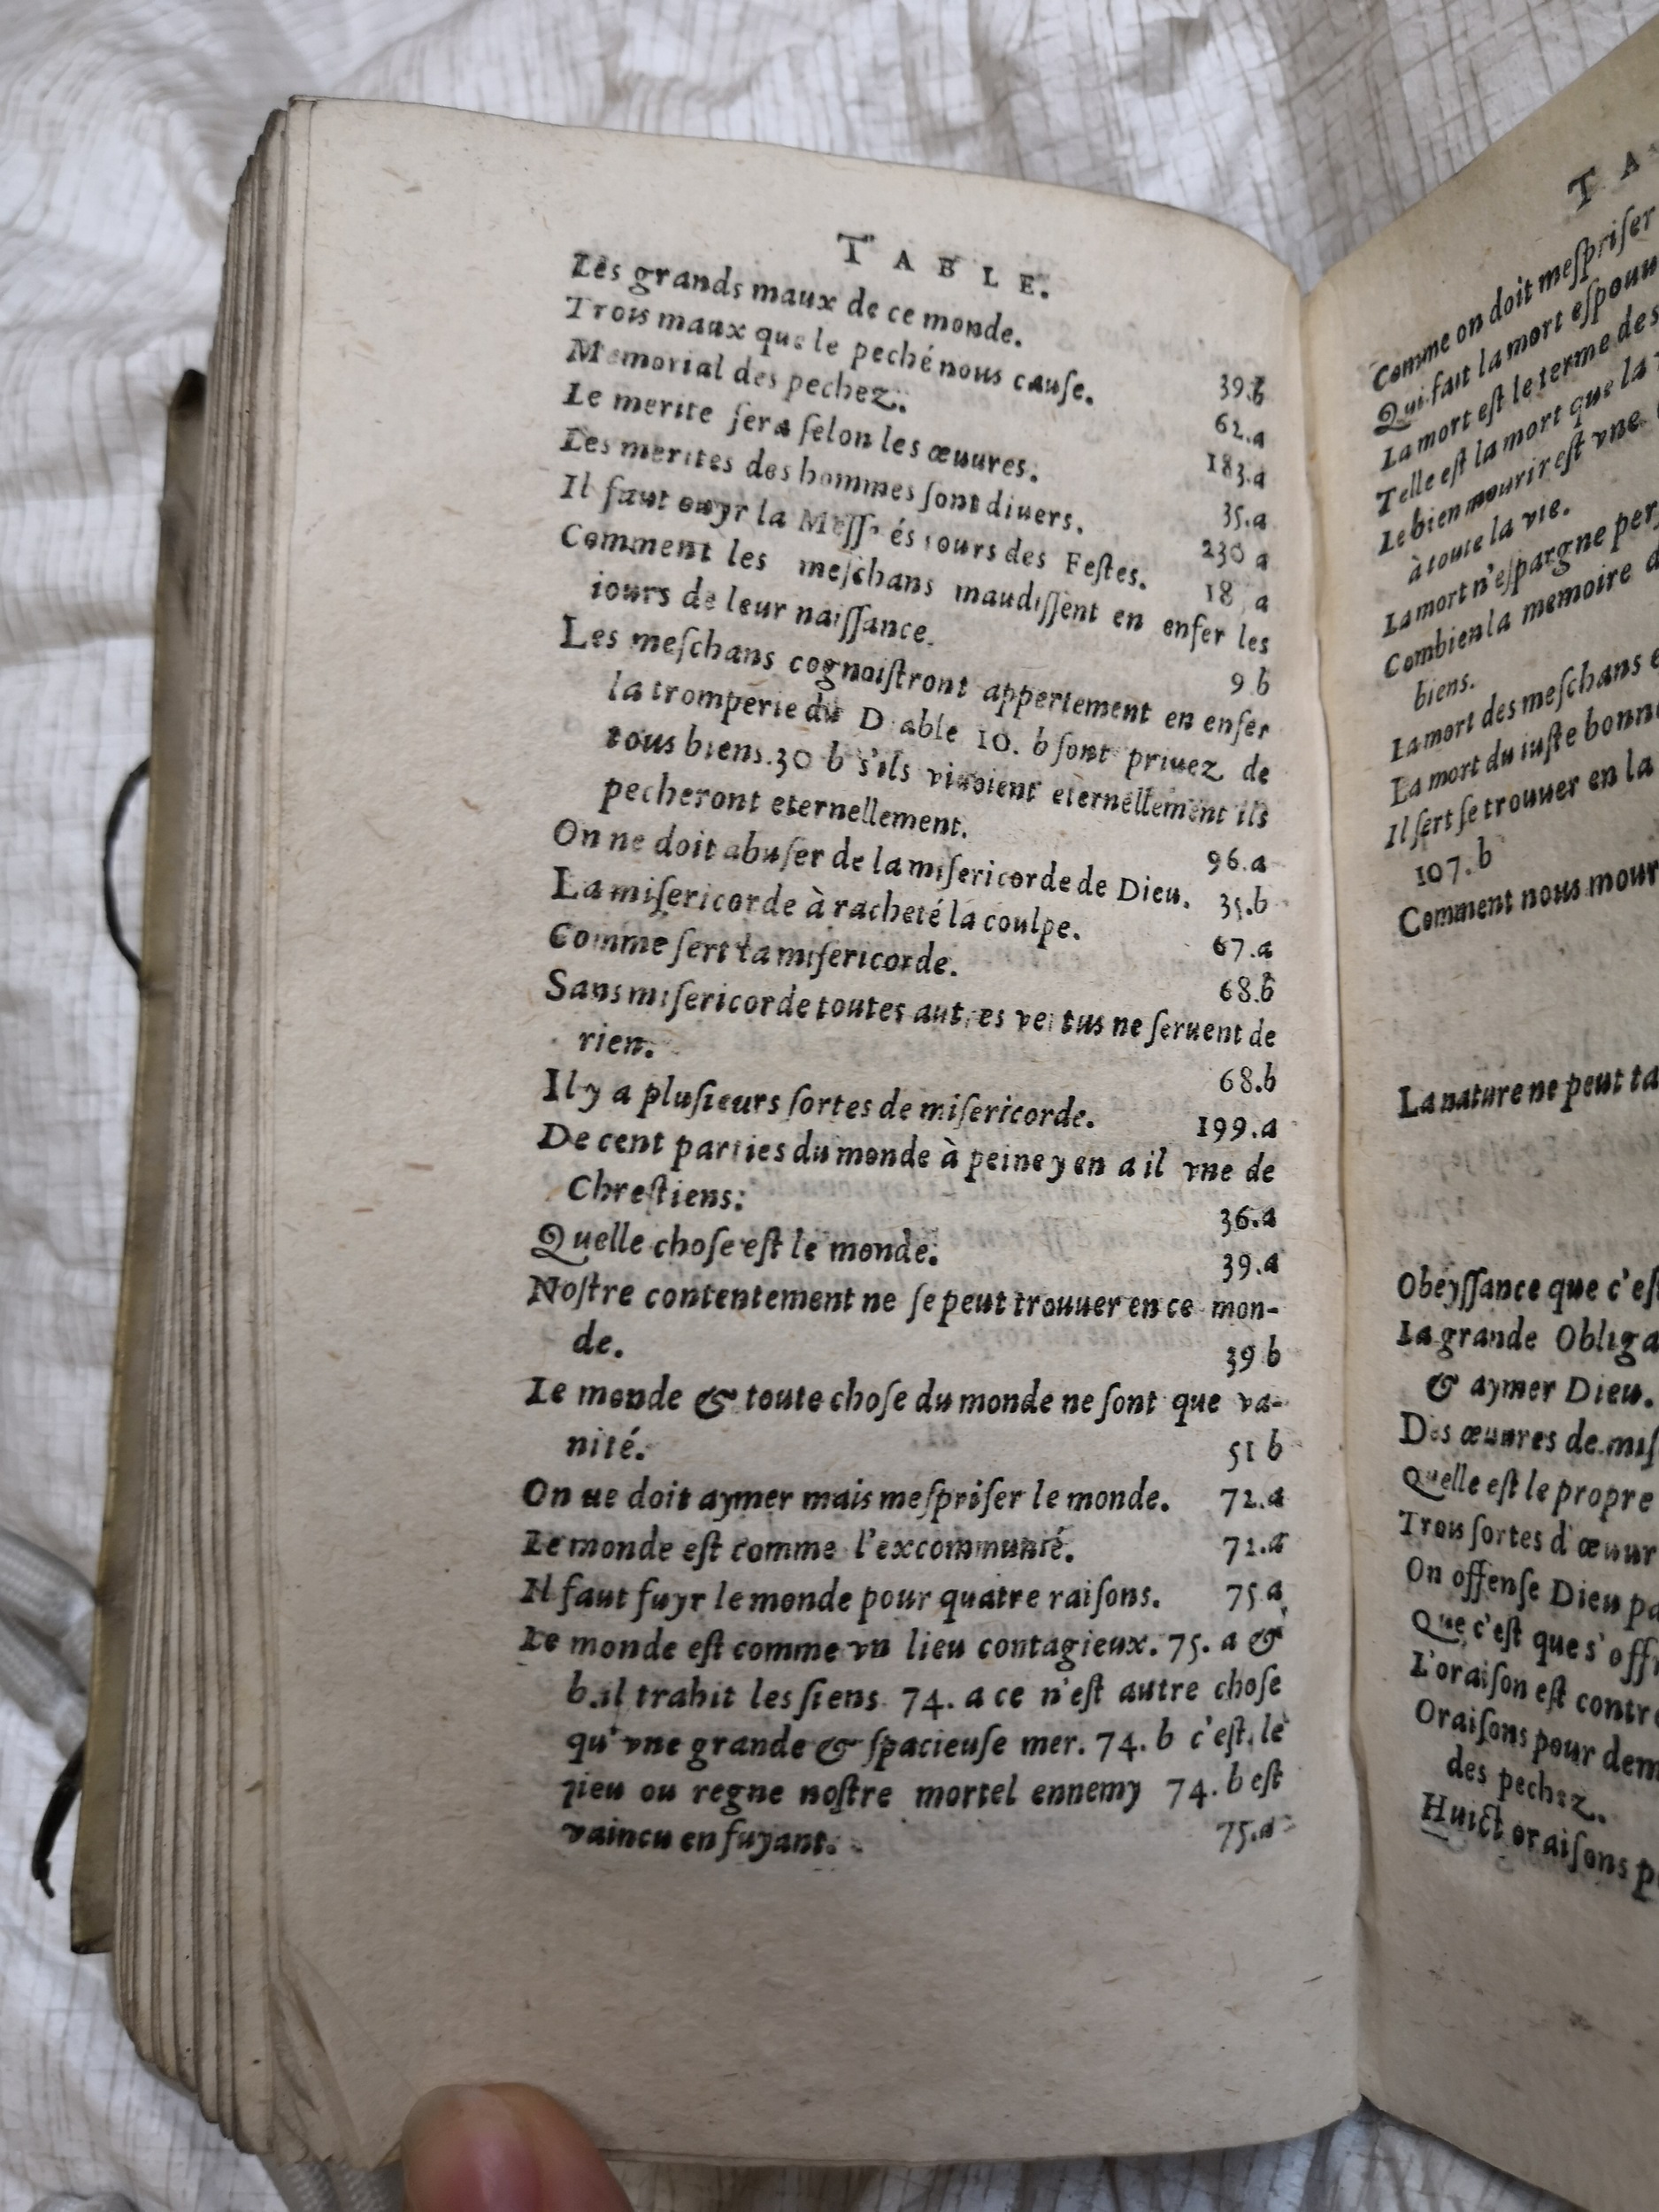 TABLE.
Les grands maux de ce monde. 39.b
Trois maux que le peché nous cauſe. 62.a
Memorial des pechez. 183.a
Le merite ſera ſelon les œuures. 35.a
Les merites des hommes ſont diuers. 230 a
Il faut ouyr la Meſſe és iours des Feſtes. 18 a
Comment les meſchans maudiſſent en enfer les
iours de leur naiſſance. 9 b
Les meſchans cognoiſtront appertement en enfer
la tromperie du Diable 10. b ſont priuez de
tous biens. 30 b s'ils viuoient eternellement ils
pecheront eternellement. 96.a
On ne doit abuſer de la miſericorde de Dieu. 35.b
La miſericorde à racheté la coulpe. 67.a
Comme ſert la miſericorde. 68.b
Sans miſericorde toutes autres vertus ne ſeruent de
rien. 68.b
Il y a pluſieurs ſortes de miſericorde. 199.a
De cent parties du monde à peine y en a il vne de
Chreſtiens: 36.a
Quelle choſe eſt le monde. 39.a
Noſtre contentement ne ſe peut trouuer en ce mon-
de. 39 b
Le monde & toute choſe du monde ne ſont que va-
nité. 51 b
On ue doit aymer mais meſpriſer le monde. 72.a
Le monde eſt comme l'excommunié. 72.a
Il faut fuyr le monde pour quatre raiſons. 75.a
Le monde eſt comme vn lieu contagieux. 75. a &
b. il trahit les ſiens 74. a ce n'eſt autre choſe
qu'vne grande & ſpacieuſe mer. 74. b c'eſt le
lieu ou regne noſtre mortel ennemy 74. b eſt
vaincu en fuyant. 75.a
TA
Comme on doit meſpriſer
Qui fait la mort
La mort eſt le terme des
Telle eſt la mort que la
Le bien mourir eſt vne
à toute la vie.
La mort n'eſpargne
Combien la memoire
biens.
La mort des meſchans
La mort du iuſte
Il ſert ſe trouuer en la
107.b
Comment nous
La nature ne peut
Obeyſſance que
La grande
& aymer Dieu.
Des œuures de
Quelle eſt le propre
Trois ſortes
On offenſe Dieu
Que c'eſt que
L'oraiſon eſt
Oraiſons pour
des pechez.
Huict oraiſons